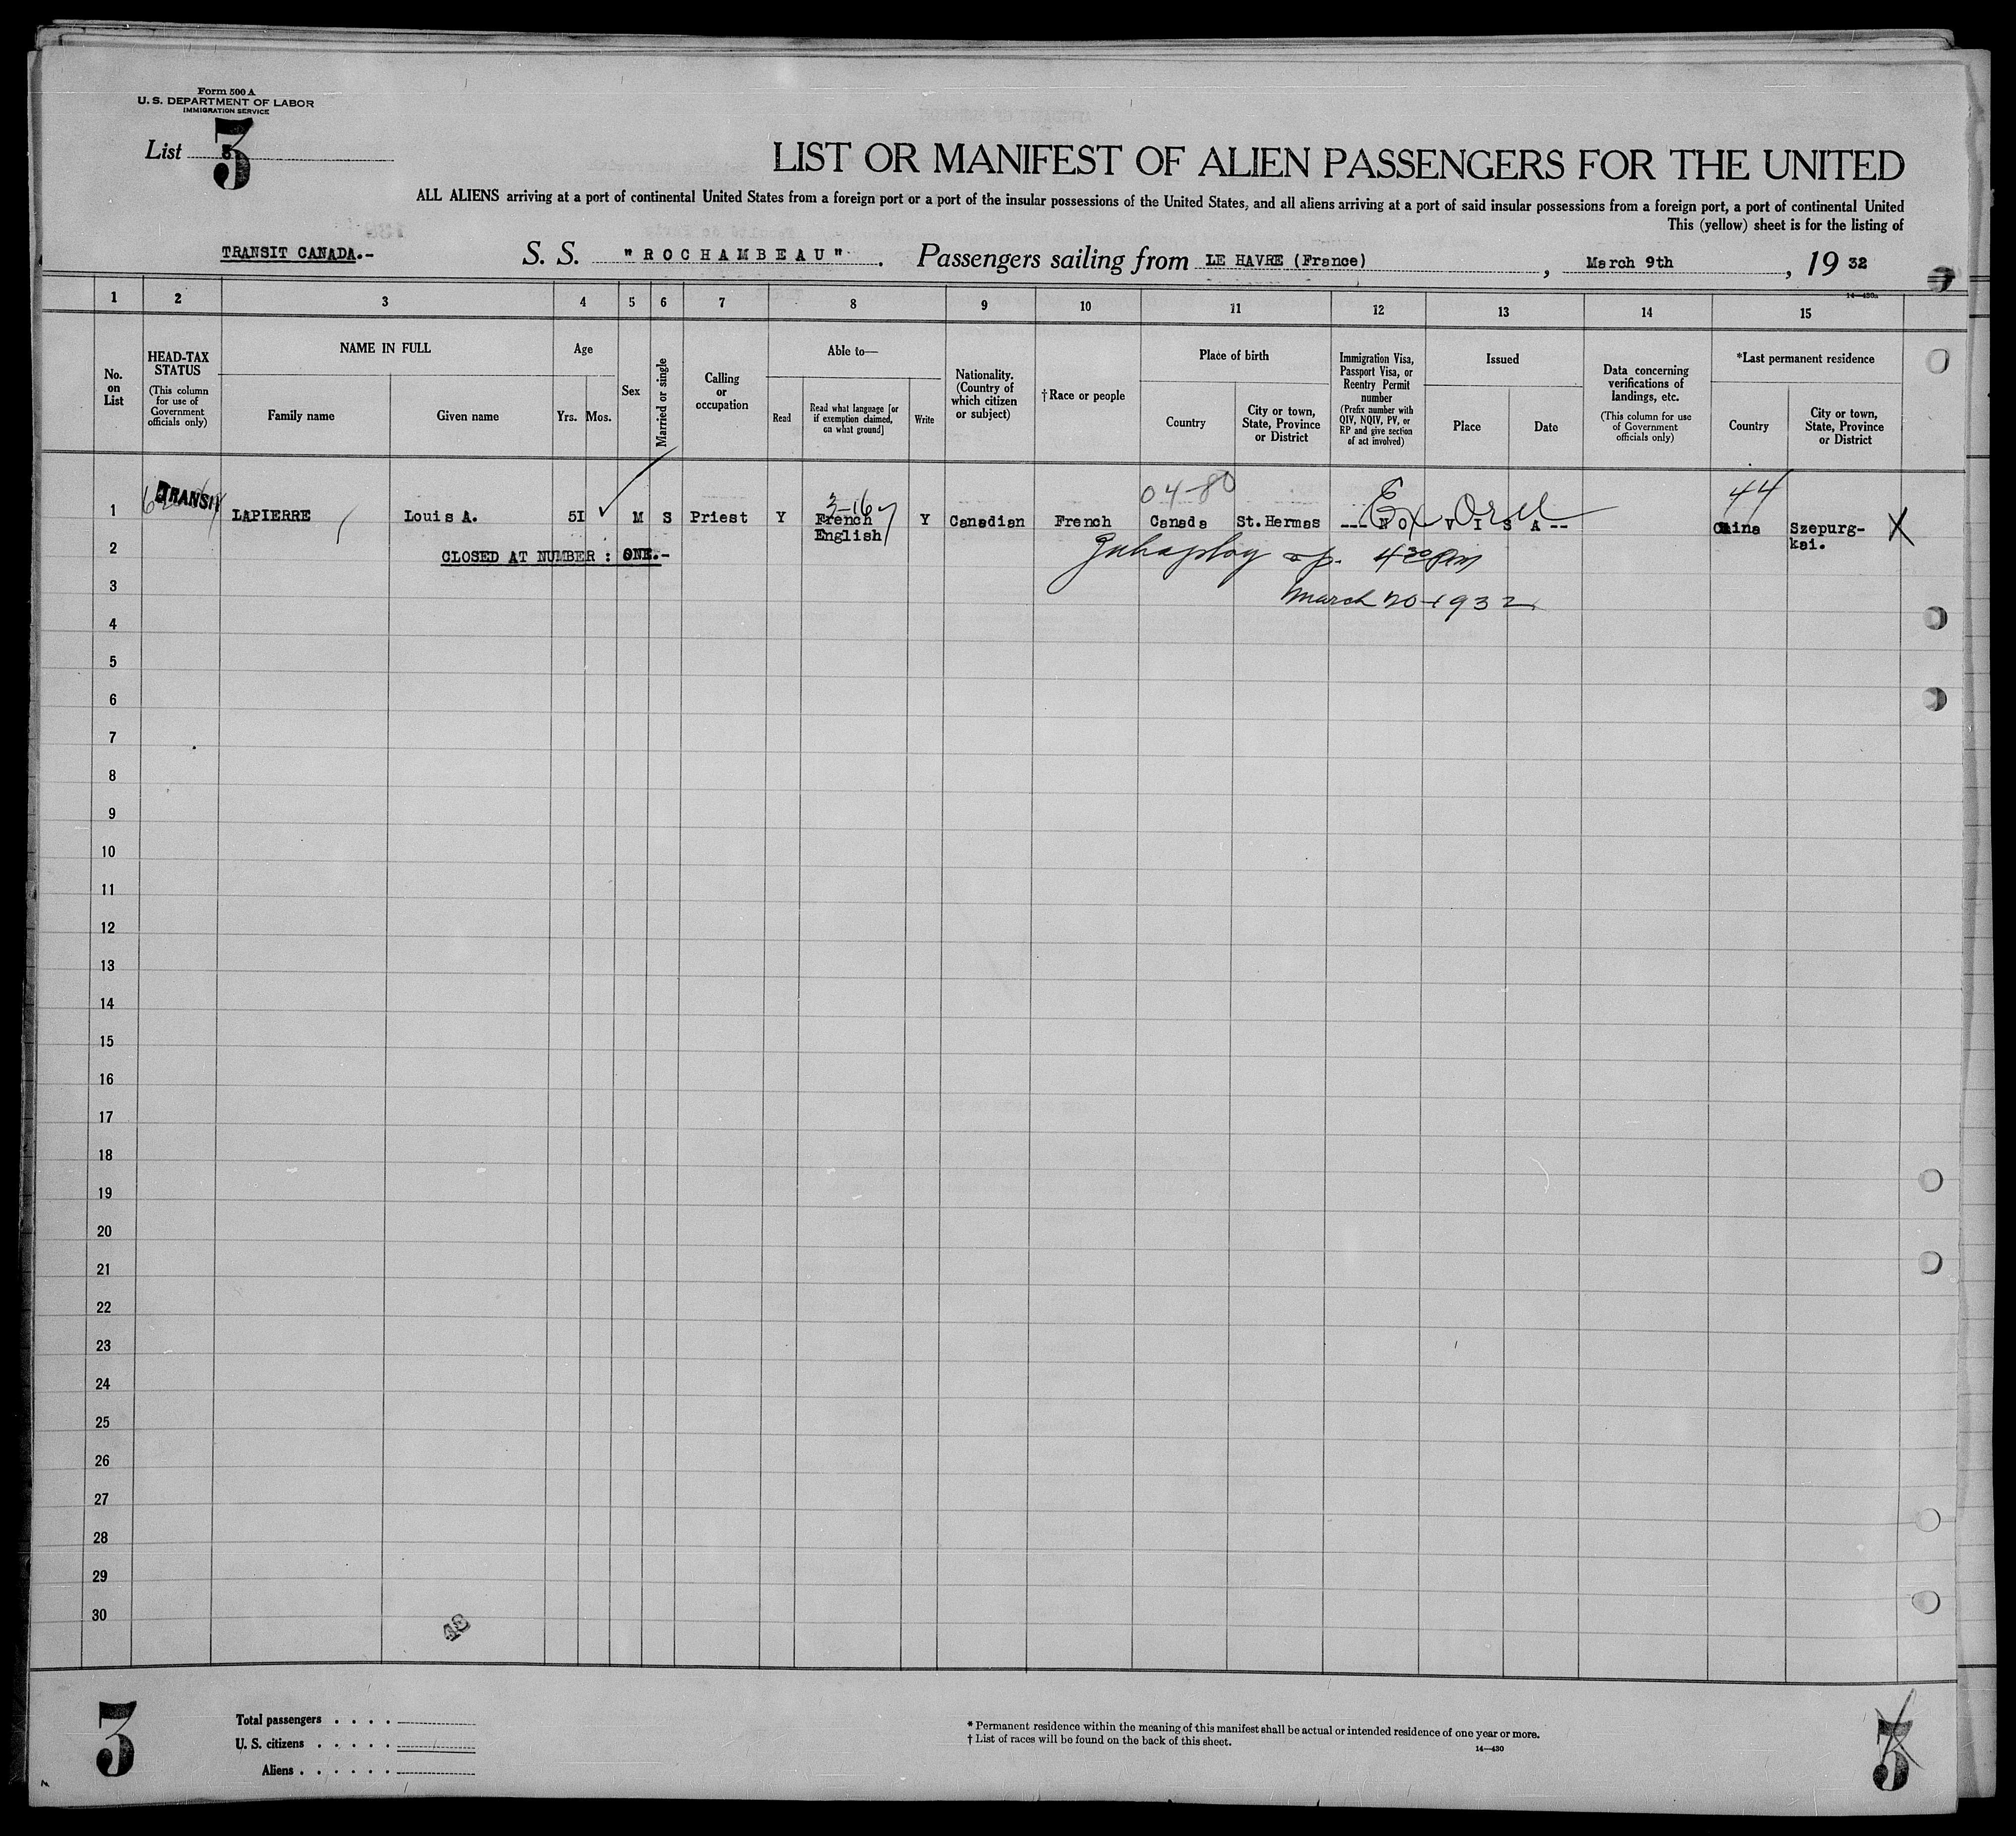 Form 500 A
U. S. DEPARTMENT OF LABOR
IMMIGRATION SERVICE
List 3
LIST OR MANIFEST OF ALIEN PASSENGERS FOR THE UNITED
ALL ALIENS arriving at a port of continental United States from a foreign port or a port of the insular possessions of the United States, and all aliens arriving at a port of said insular possessions from a foreign port, a port of continental United
This (yellow) sheet is for the listing of
TRANSIT CANADA.-
S. S. "ROCHAMBEAU". Passengers sailing from LE HAVRE (France), March 9th, 19 32
1 2 3 4 5 6 7 8 9 10 11 12 13 14 15
No. on List
HEAD-TAX STATUS
(This column for use of Government officials only)
NAME IN FULL
Family name
Given name
Age
Yrs. Mos.
Sex
Married or single
Calling or occupation
Able to—
Read
Read what language [or if exemption claimed, on what ground]
Write
Nationality. (Country of which citizen or subject)
†Race or people
Place of birth
Country
City or town, State, Province or District
Immigration Visa, Passport Visa, or Reentry Permit number
(Prefix number with QIV, NQIV, PV, or RP and give section of act involved)
Issued
Place
Date
Data concerning verifications of landings, etc.
(This column for use of Government officials only)
*Last permanent residence
Country
City or town, State, Province or District
3-16
04-80
44
1 TRANSIT LAPIERRE Louis A. 5I ✓ M S Priest Y French Y Canadian French Canada St.Hermas ---NO VISA-- China Szepurg- X
English
kai.
2 CLOSED AT NUMBER : ONE.-
4 30 PM
3 March 20-1932
4
5
6
7
8
9
10
11
12
13
14
15
16
17
18
19
20
21
22
23
24
25
26
27
28
29
30
48
3
Total passengers
U. S. citizens
Aliens
* Permanent residence within the meaning of this manifest shall be actual or intended residence of one year or more.
† List of races will be found on the back of this sheet.
14—430
3